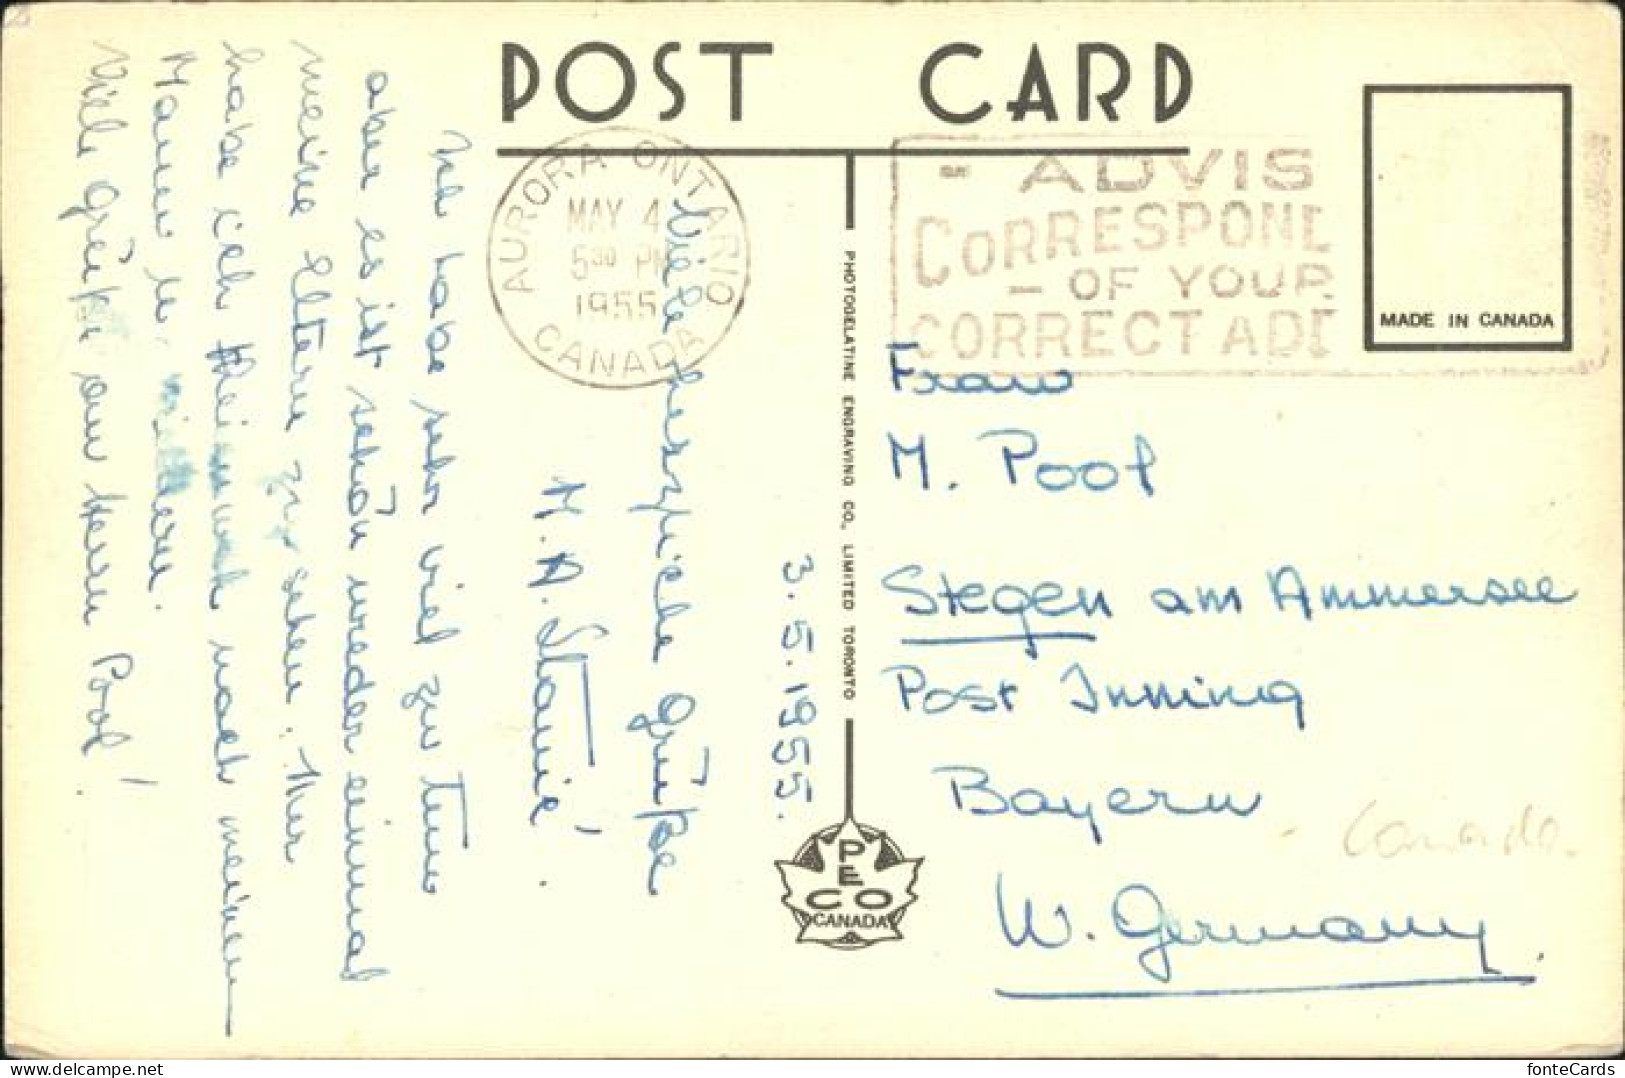 POST CARD
AURORA ONTARIO
MAY 4
5 30 PM
1955
CANADA
- ADVIS
CORRESPOND
- OF YOUR
CORRECT ADD
MADE IN CANADA
3.5.1955.
Viele herzliche Grüße
M. A. Stanié.
Ich habe sehr viel zu tun
aber es ist schön wieder einmal
meine Eltern zu sehen. Nur
habe ich Heimweh nach meinem
Mann u.
Viele Grüße an Herrn Pool!
PHOTOGELATINE ENGRAVING CO. LIMITED TORONTO
PECO
CANADA
Frau
M. Pool
Stegen am Ammersee
Post Inning
Bayern
W. Germany.
Canada.
delcampe.net
fonteCards